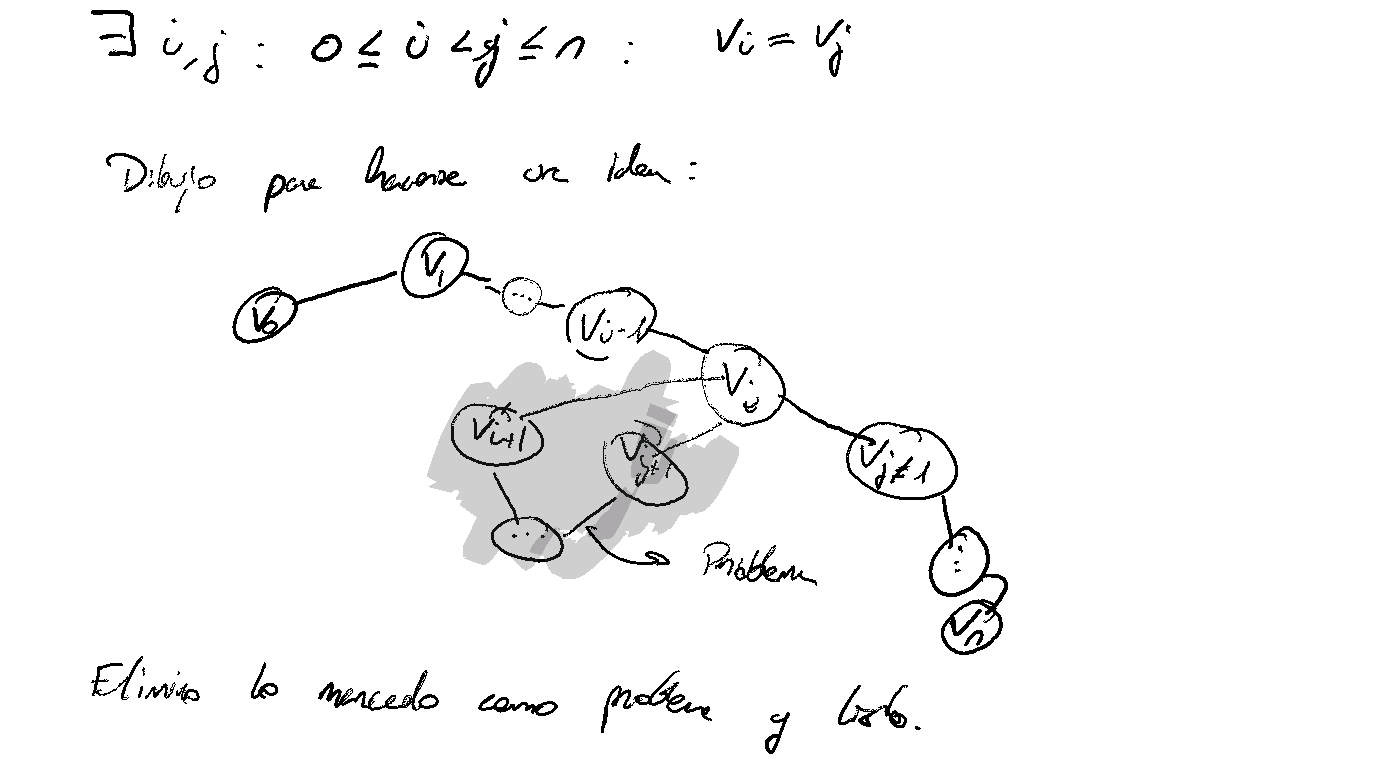 ∃ i, j : 0 ≤ i < j ≤ n : Vi = Vj
Dibujo para hacerse una idea :
V0
V1
...
Vi-1
Vi
Vi+1
...
Vj+1
...
Vn
Problema
Elimino lo marcado como problema y listo.